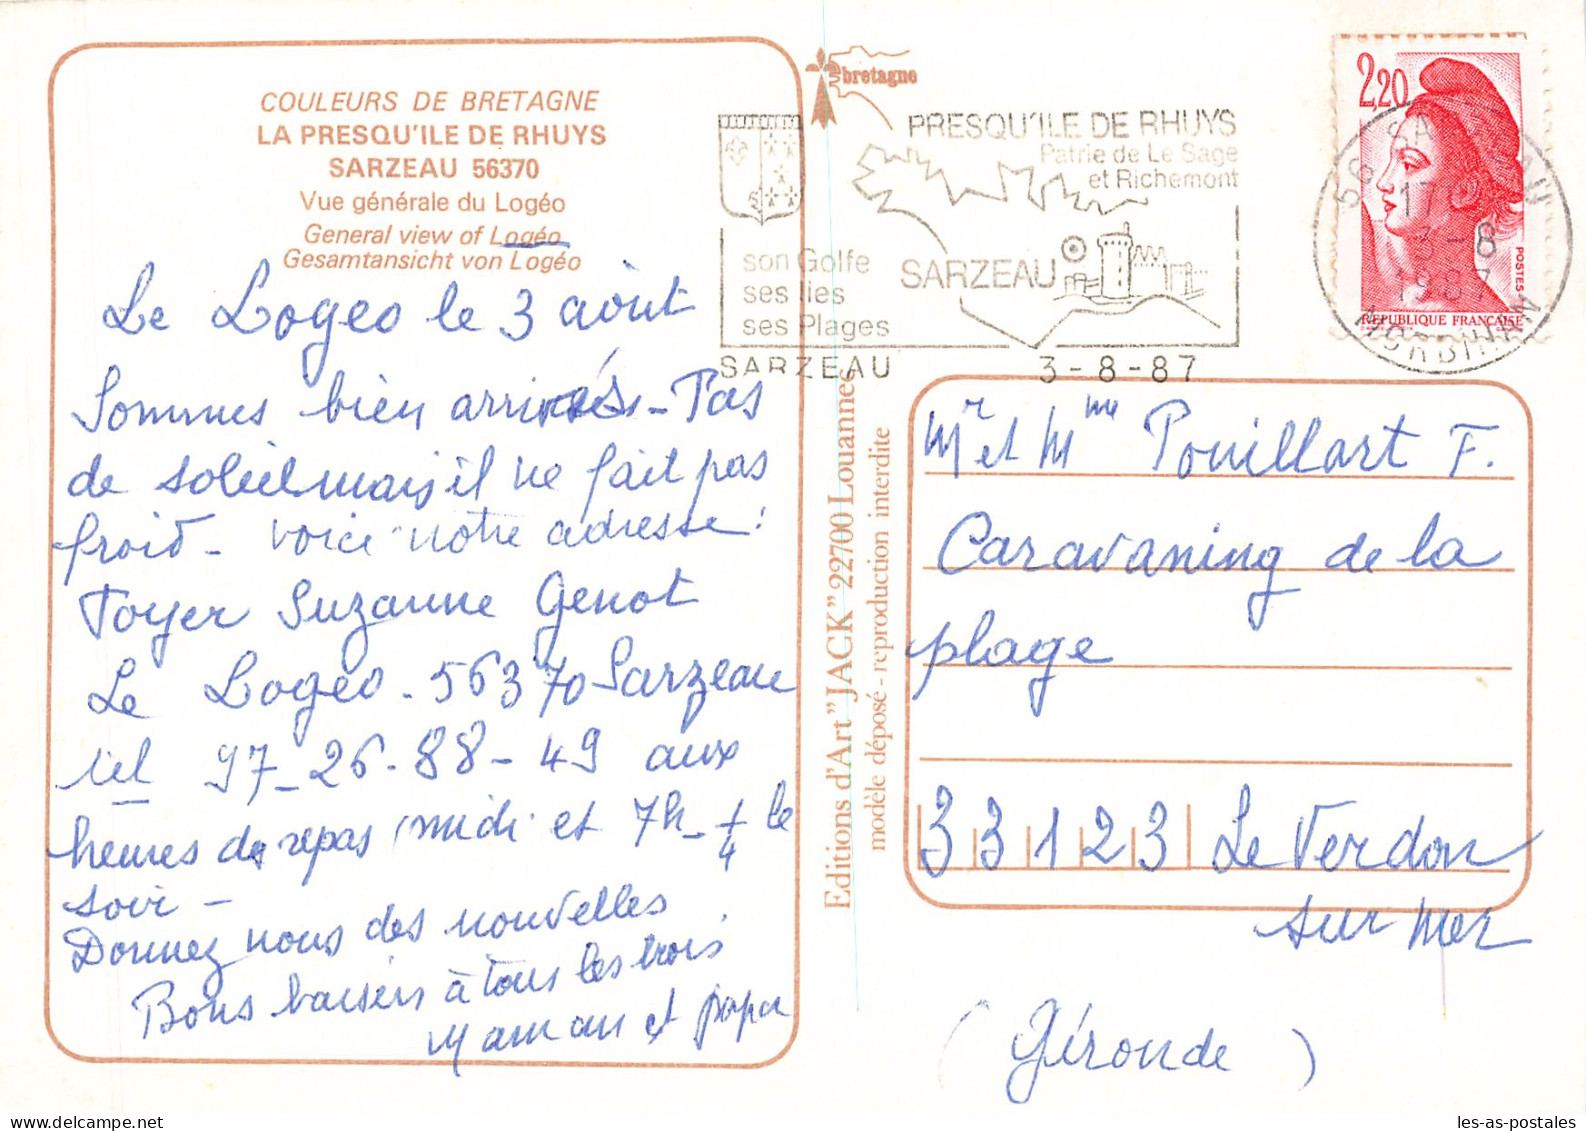 COULEURS DE BRETAGNE
LA PRESQU'ILE DE RHUYS
SARZEAU 56370
Vue générale du Logéo
General view of Logéo
Gesamtansicht von Logéo
Le Logeo le 3 août
Sommes bien arrivés - Pas
de soleil mais il ne fait pas
froid - voici notre adresse :
Foyer Suzanne Genot
Le Logeo - 56370 Sarzeau
tel 97-26-88-49 aux
heures de repas (midi et 7h 1/4 le
soir -
Donnez nous des nouvelles
Bons baisers à tous les trois.
Maman et papa
bretagne
PRESQU'ILE DE RHUYS
Patrie de Le Sage
et Richemont
son Golfe
ses Iles
ses Plages
SARZEAU
SARZEAU
3-8-87
2,20
POSTES
REPUBLIQUE FRANÇAISE
56 SARZEAU
17
3-8
1987
MORBIHAN
Editions d'Art "JACK" 22700 Louannec
modèle déposé - reproduction interdite
Mr et Mme Pouillart F.
Caravaning de la
plage
33123 Le Verdon
sur Mer
(Gironde)
les-as-postales